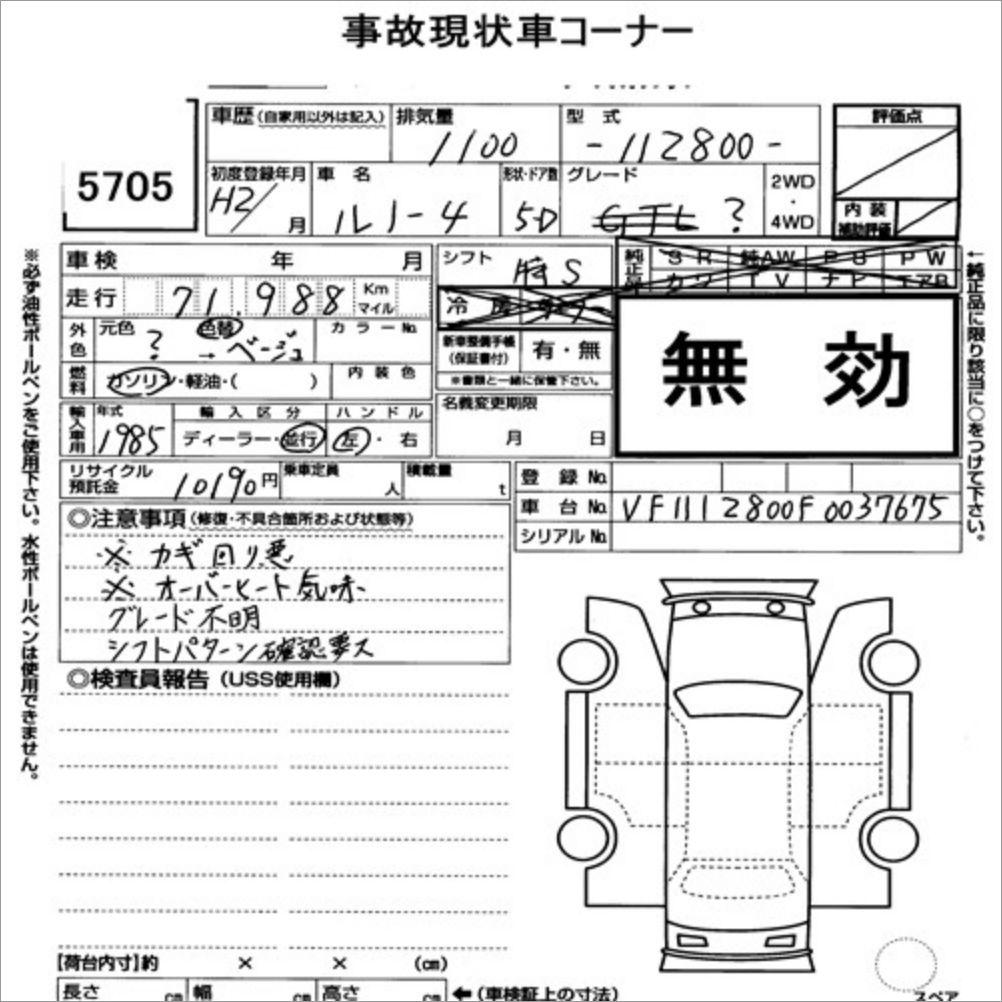 事故現状車コーナー
5705
車歴(自家用以外は記入)
排気量
1100
型式
-112800-
評価点
初度登録年月
H2/ 月
車名
ルノー4
形状・ドア数
5D
グレード
GTL ?
2WD
・
4WD
内装
補助評価
※必ず油性ボールペンをご使用下さい。水性ボールペンは使用できません。
車検 年 月
シフト
純正品
SR 純AW PS PW
カワ TV ナビ エアB
←純正品に限り該当に○をつけて下さい。
走行 71,988 Km
マイル
冷房
外色
元色
?
色替
→ベージュ
カラーNo.
新車整備手帳
(保証書付)
有・無
※書類と一緒に保管下さい。
無効
燃料
ガソリン・軽油・( )
内装色
名義変更期限
月 日
輸入車用
年式
1985
輸入区分
ディーラー・並行
ハンドル
左・右
リサイクル
預託金
10190円
乗車定員
人
積載量
t
登録No.
車台No. VF1112800F0037675
シリアルNo.
◎注意事項(修復・不具合箇所および状態等)
※ カギ回り悪
※ オーバーヒート気味
グレード不明
シフトパターン確認要ス
◎検査員報告(USS使用欄)
【荷台内寸】約 × × (cm)
長さ cm 幅 cm 高さ cm ←(車検証上の寸法)
スペア